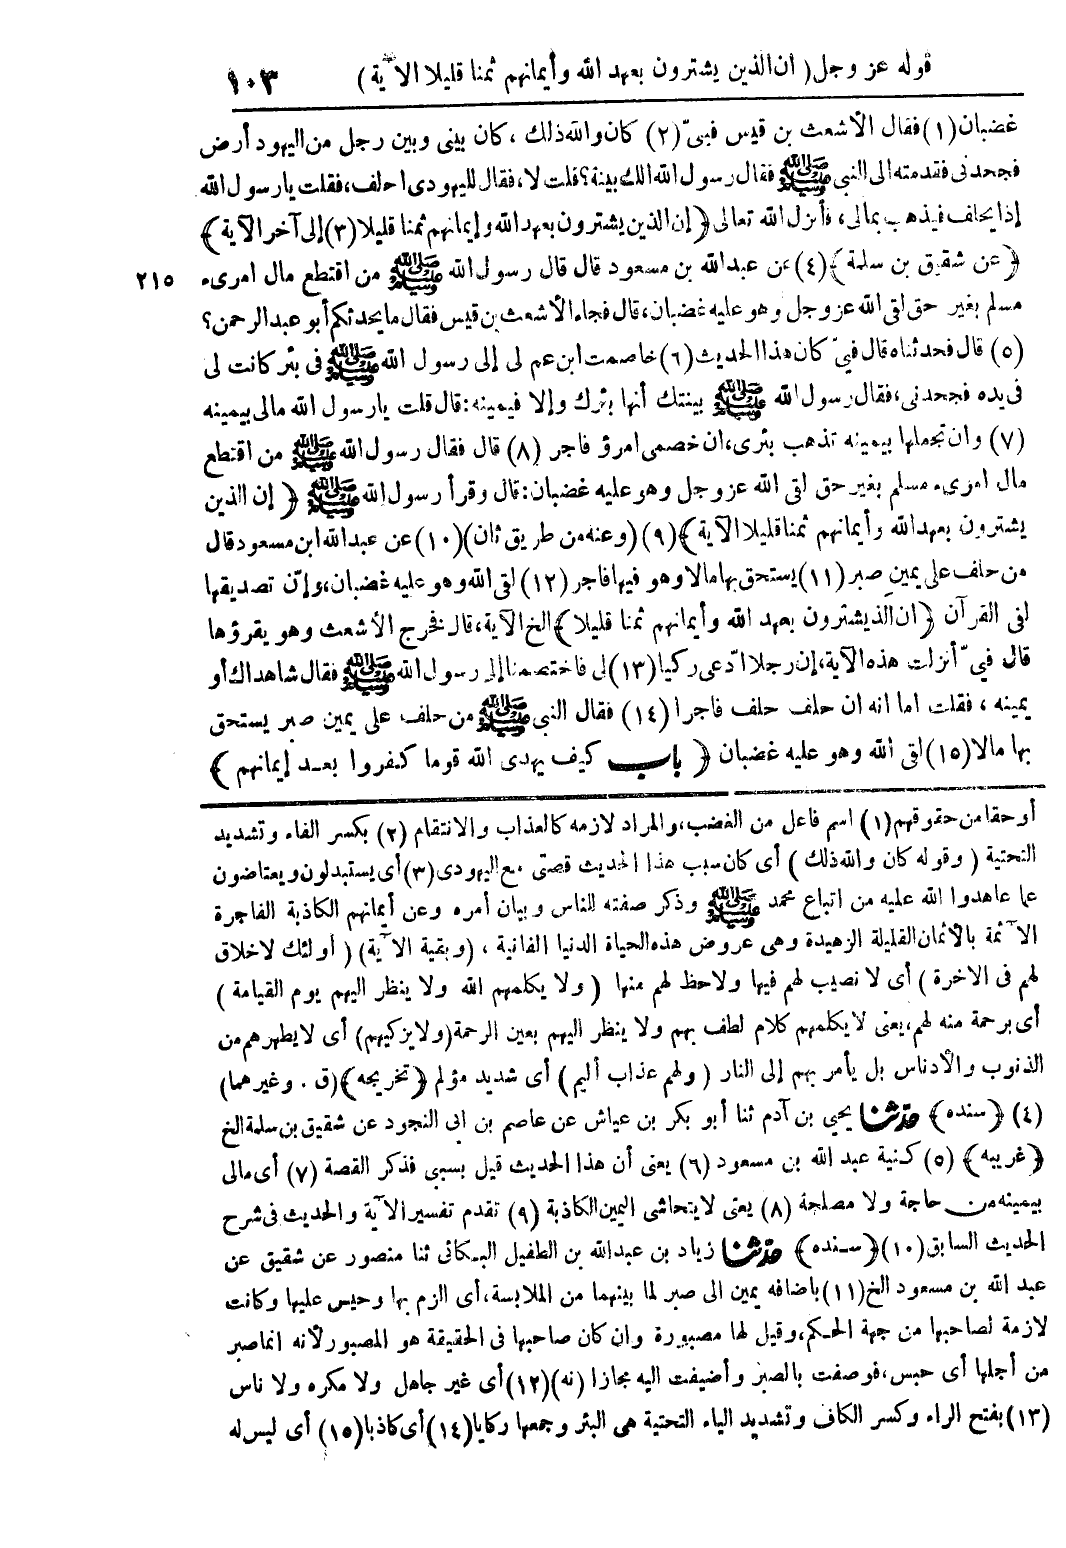 قوله عز وجل (ان الذين يشترون بعهد الله وأيمانهم ثمنا قليلا الآية) ١٠٣
غضبان (١) فقال الأشعث بن قيس فيّ (٢) كان والله ذلك ، كان بيني وبين رجل من اليهود أرض
فجحدنى فقدمته الى النبى ﷺ فقال رسول الله الك بينة؟ قلت لا، فقال لليهودى احلف، فقلت يارسول الله
إذا يحلف فيذهب بمالى، فأنزل الله تعالى ﴿ إن الذين يشترون بعهد الله وإيمانهم ثمنا قليلا (٣) إلى آخر الآية ﴾
﴿ عن شقيق بن سلمة ﴾ (٤) عن عبدالله بن مسعود قال قال رسول الله ﷺ من اقتطع مال امرىء ٢١٥
مسلم بغير حق لقى الله عز وجل وهو عليه غضبان، قال فجاء الأشعث بن قيس فقال ما يحدثكم أبو عبد الرحمن؟
(٥) قال فحدثناه قال فيّ كان هذا الحديث (٦) خاصمت ابن عم لى إلى رسول الله ﷺ فى بئر كانت لى
فى يده فجحدنى، فقال رسول الله ﷺ بينتك أنها بئرك وإلا فيمينه: قال قلت يارسول الله مالى بيمينه
(٧) وان تجعلها بيمينه تذهب بئرى، ان خصمى امرؤ فاجر (٨) قال فقال رسول الله ﷺ من اقتطع
مال امرىء مسلم بغير حق لقى الله عز وجل وهو عليه غضبان: قال وقرأ رسول الله ﷺ ﴿ إن الذين
يشترون بعهد الله وأيمانهم ثمنا قليلا الآية ﴾ (٩) (وعنه من طريق ثان) (١٠) عن عبد الله ابن مسعود قال
من حلف على يمينِ صبر (١١) يستحق بها مالا وهو فيها فاجر (١٢) لقى الله وهو عليه غضبان، وإنّ تصديقها
لفى القرآن ﴿ ان الذ يشترون بعهد الله وأيمانهم ثمنا قليلا ﴾ الخ الآية، قال فخرج الأشعث وهو يقرؤها
قال فيّ أنزلت هذه الآية، إن رجلا ادّعى ركيا (١٣) لى فاختصمنا إلى رسول الله ﷺ فقال شاهداك أو
يمينه ، فقلت اما انه ان حلف حلف فاجرا (١٤) فقال النبى ﷺ من حلف على يمين صبر يستحق
بها مالا (١٥) لقى الله وهو عليه غضبان ﴿ باب كيف يهدى الله قوما كفروا بعد إيمانهم ﴾
أو حقا من حقوقهم (١) اسم فاعل من الغضب، والمراد لازمه كالعذاب والانتقام (٢) بكسر الفاء وتشديد
التحتية ( وقوله كان والله ذلك ) أى كان سبب هذا الحديث قصتى مع اليهودى (٣) أى يستبدلون ويعتاضون
عما عاهدوا الله عليه من اتباع محمد ﷺ وذكر صفته للناس وبيان أمره وعن أيمانهم الكاذبة الفاجرة
الآثمة بالأثمان القليلة الزهيدة وهى عروض هذه الحياة الدنيا الفانية ، (وبقية الآية) ( أولئك لاخلاق
لهم فى الاخرة ) أى لا نصيب لهم فيها ولاحظ لهم منها ( ولا يكلمهم الله ولا ينظر اليهم يوم القيامة )
أى برحمة منه لهم، يعنى لا يكلمهم كلام لطف بهم ولا ينظر اليهم بعين الرحمة (ولايزكيهم) أى لايطهرهم من
الذنوب والأدناس بل يأمر بهم إلى النار ( ولهم عذاب أليم ) أى شديد مؤلم ﴿ تخريجه ﴾ (ق . وغيرهما)
(٤) ﴿ سنده ﴾ حدثنا يحيى بن آدم ثنا أبو بكر بن عياش عن عاصم بن ابى النجود عن شقيق بن سلمة الخ
﴿ غريبه ﴾ (٥) كنية عبد الله بن مسعود (٦) يعنى أن هذا الحديث قيل بسببى فذكر القصة (٧) أى مالى
بيمينه من حاجة ولا مصلحة (٨) يعنى لايتحاشى اليمين الكاذبة (٩) تقدم تفسير الآية والحديث فى شرح
الحديث السابق (١٠) ﴿ سنده ﴾ حدثنا زياد بن عبدالله بن الطفيل البكائى ثنا منصور عن شقيق عن
عبد الله بن مسعود الخ (١١) باضافه يمين الى صبر لما بينهما من الملابسة، أى الزم بها وحبس عليها وكانت
لازمة لصاحبها من جهة الحكم، وقيل لها مصبورة وان كان صاحبها فى الحقيقة هو المصبور لأنه انما صبر
من أجلها أى حبس، فوصفت بالصبر وأضيفت اليه مجازا (نه) (١٢) أى غير جاهل ولا مكره ولا ناس
(١٣) بفتح الراء وكسر الكاف وتشديد الياء التحتية هى البئر وجمعها ركايا (١٤) أى كاذبا (١٥) أى ليس له